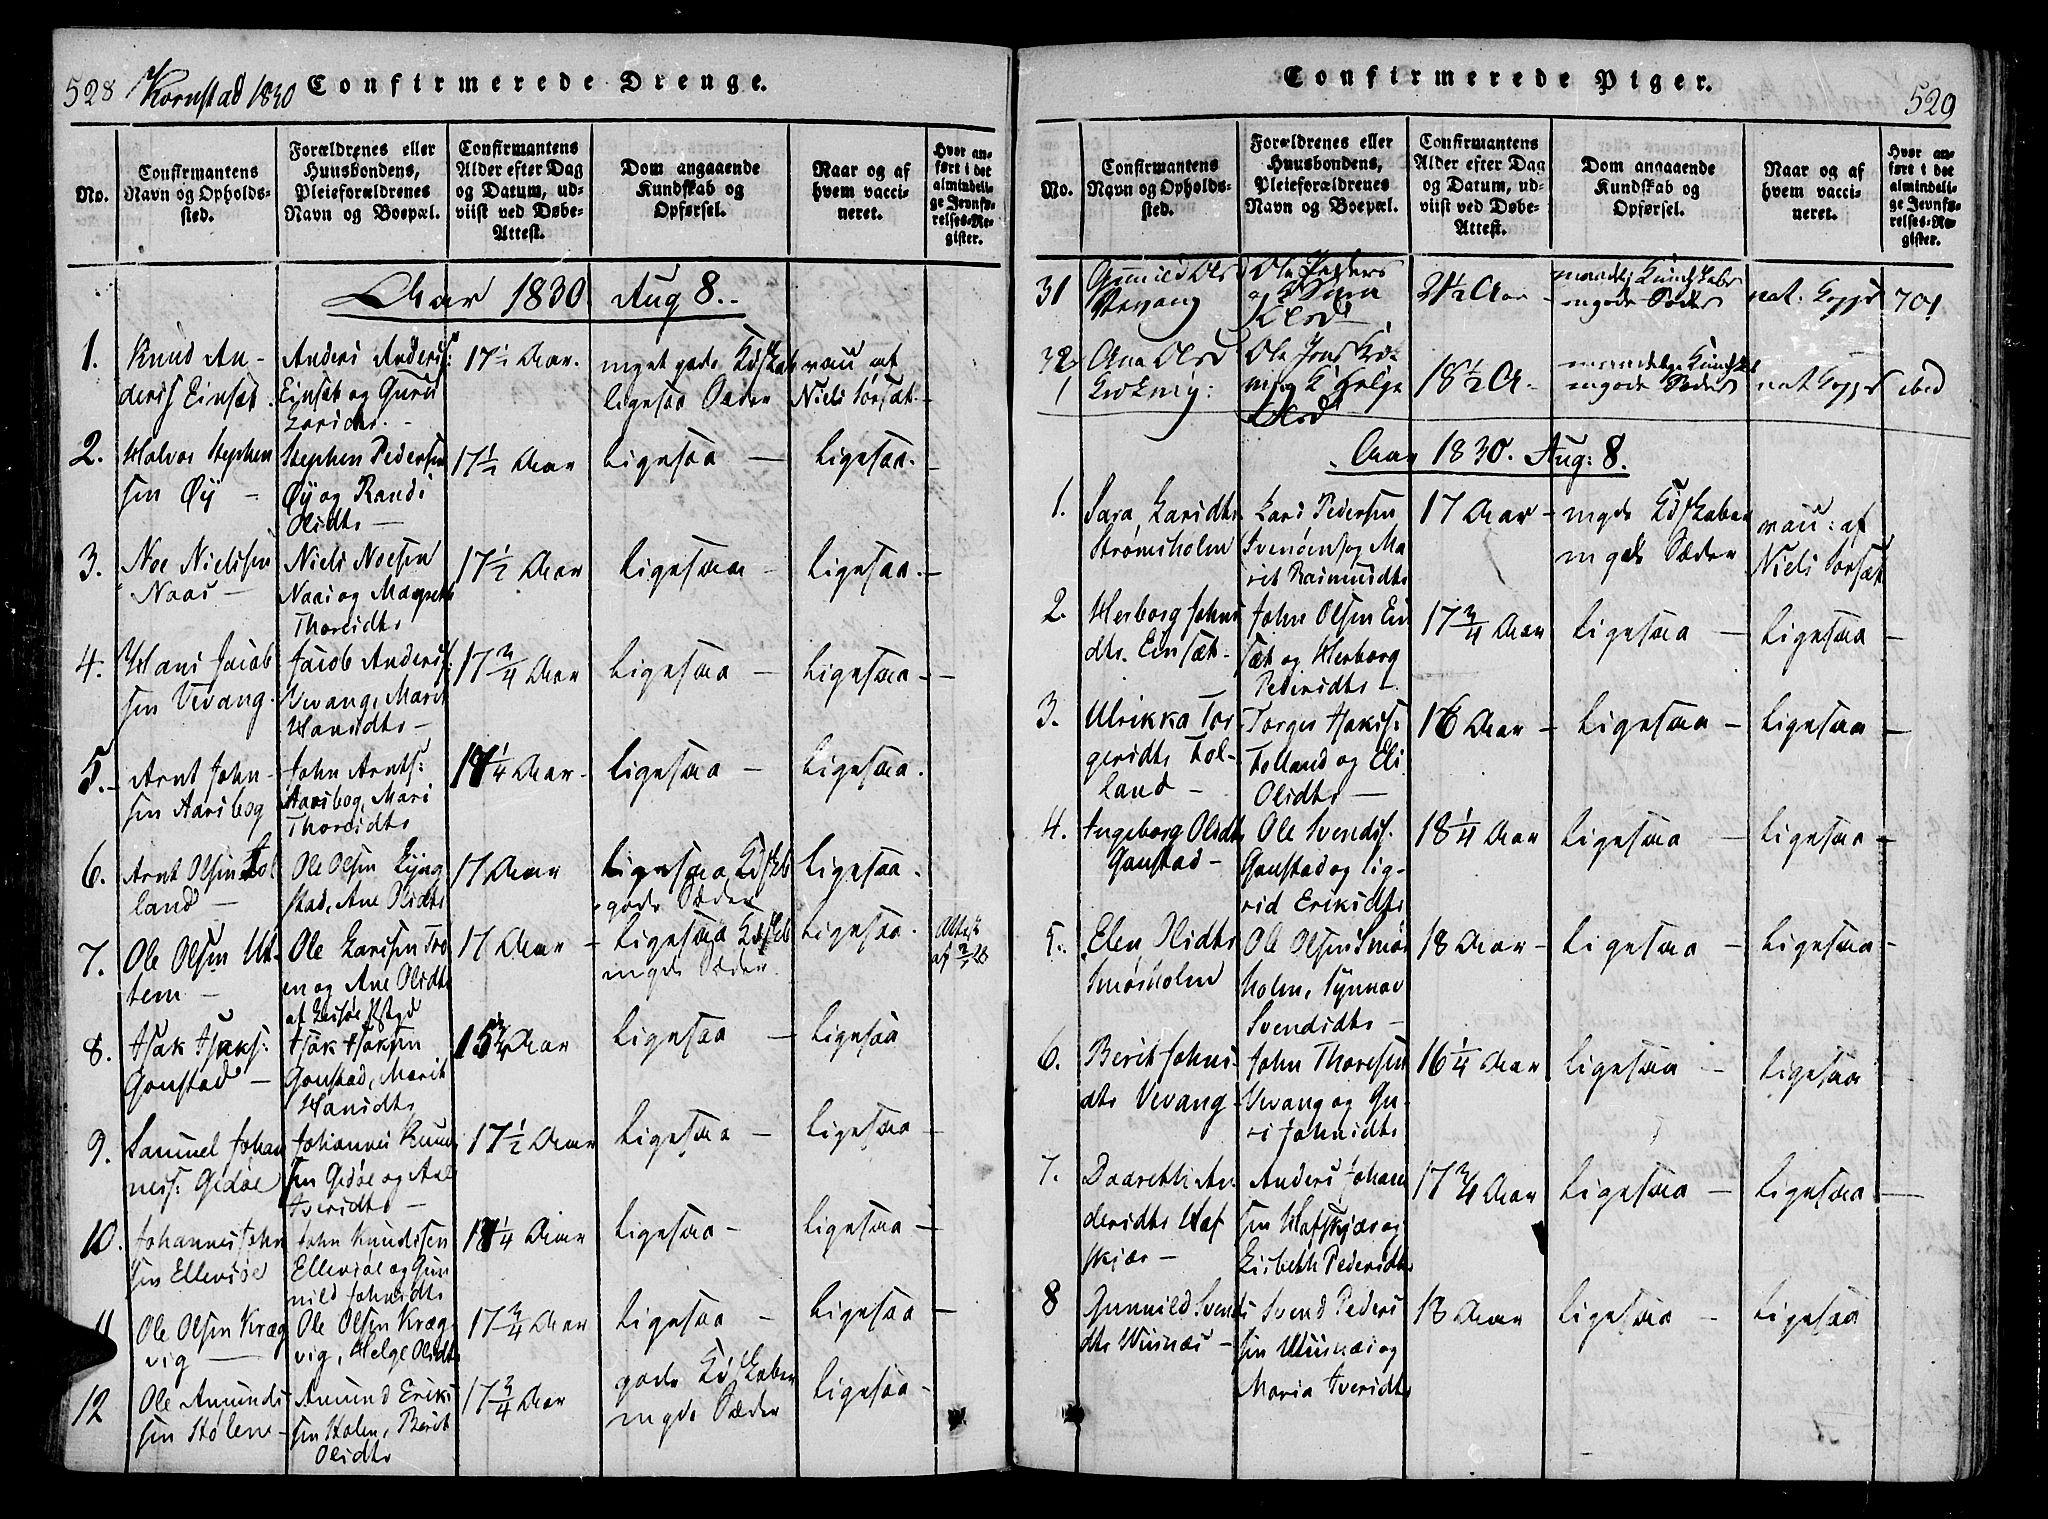 528 Kornstad 1830 Confirmerede Drenge.
No.
Confirmantens
Navn og Opholds-
sted.
Forældrenes eller
Huusbondens,
Pleieforældrenes
Navn og Boepæl.
Confirmantens
Alder efter Dag
og Datum, ud-
viist ved Døbe-
Attest.
Dom angaaende
Kundskab og
Opførsel.
Naar og af
hvem vacci-
neret.
Hvor an-
ført i det
almindeli-
ge Jevnfø-
relses-Re-
gister.
Aar 1830 Aug 8.
1. Knud An-
ders Einset
Anders Anders:
Einset og Guru
Larsdtr.
17½ Aar.
meget gode
ligesaa Sæder
vac af
Niels Sorsæt
2. Halvor Stephen
sen Øÿ
Stephen Pedersen
Øÿ og Randi
Olsdtr
17½ Aar
Ligesaa
Ligesaa.
3. Noe Nielssen
Naas
Niels Noesen
Naas og
Thoresdtr
17½ Aar
Ligesaa
Ligesaa.
4. Hans Jacob
sen Vevang
Jacob Anders:
Vevang, Marit
Hansdtr
17¾ Aar
Ligesaa
Ligesaa
5. Arnt John-
sen Aarsbog
John Arnts:
Aarsbog, Mari
Thoresdtr
Aar
Ligesaa
Ligesaa.
6. Arnt Olsen Tol
land
Ole Olsen Lÿng
stad, Ane Olsdtr
17 Aar
Ligesaa
gode Sæder
Ligesaa.
7. Ole Olsen Ut-
tem
Ole Larssen Tro
en og Ane Olsdtr
17 Aar
Ligesaa
mgde Sæder
Ligesaa.
Attest
af
8. Isak Isaks:
Gonstad
Isak Isaksen
Gonstad, Marit
Hansdtr
Aar
Ligesaa
Ligesaa
9. Samuel Johan
nes: Gidøe
Johannes Knud
sen Gidøe og Ane
Iversdtr
17½ Aar
Ligesaa
Ligesaa
10. Johannes John
sen Ellevsøe
John Knudssen
Ellevsøe og Gun
nild Johnsdtr
Aar
Ligesaa
Ligesaa
11 Ole Olsen Kræg
vig
Ole Olsen Kræg
vig, Helge Olsdtr
17¾ Aar
Ligesaa
Ligesaa
12 Ole Amunds
sen Hølene
Amund Eriks
sen Holen, Berit
Olsdtr
17¾ Aar
gode Kdskaber
mgde Sæder
Ligesaa
Confirmerede Piger.
529
No.
Confirmantens
Navn og Opholds-
sted.
Forældrenes eller
Huusbondens,
Pleieforældrenes
Navn og Boepæl.
Confirmantens
Alder efter Dag
og Datum, ud-
viist ved Døbe-
Attest.
Dom angaaende
Kundskab og
Opførsel.
Naar og af
hvem vacci-
neret.
Hvor an-
ført i det
almindeli-
ge Jevnfø-
relses-Re-
gister.
31 Gunild Olsd
Vevang
Ole Peders
Olsd
Aar
mgode Sæder
nat. Kopper
701
32 Ane Olsd
Ole
Olsd
18½ A
mgode Sæder
nat Kopper
ibid
Aar 1830. Aug: 8.
1. Sara Larsdtr
Strømsholm
Lars Pedersen
Svenøen og Ma
rit Rasmusdtr
17 Aar
mgde Kdskaber
mgde Sæder
vac: af
Niels Sorsæt
2. Herborg Johns
dtr. Einsæt
John Olsen Ein
sæt og Herborg
Pedersdtr
17¾ Aar
Ligesaa
Ligesaa
3. Ulrikka Tor
gersdtr Tol-
land
Torger Isaks:
Tolland og Eli
Olsdtr
16 Aar
Ligesaa
Ligesaa
4. Ingeborg Olsdtr
Gonstad
Ole Svends:
Gonstad og Sig-
rid Eriksdtr
18¼ Aar
Ligesaa
Ligesaa
5. Elen Olsdtr
Smørholm
Ole Olsen Smør
holm, Synnøv
Svendsdtr
18 Aar
Ligesaa
Ligesaa
6. Berit Johns
dtr Vevang
John Thoresen
Vevang og Gu-
ri Johnsdtr
16¼ Aar
Ligesaa
Ligesaa
7. Daareth An
dersdtr Haf
skjær
Anders Johan
sen Hafskjær og
Lisbeth Pedersdtr
17¾ Aar
Ligesaa
Ligesaa
8 Gunnild Svends
dtr Huusnæs
Svend Peders
sen Huusnæs og
Maria Iversdtr
18 Aar
Ligesaa
Ligesaa